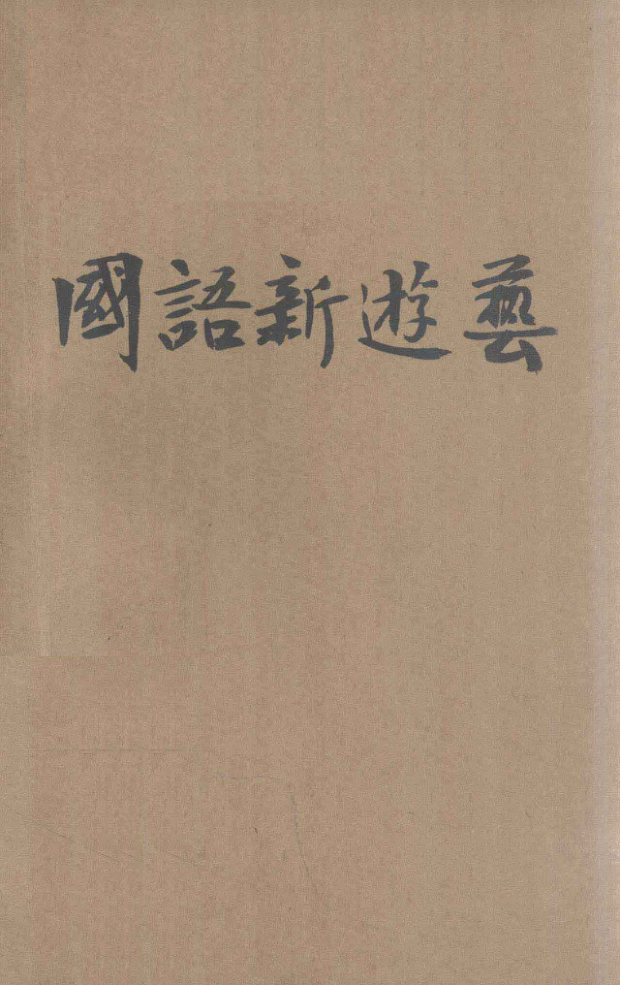 國語新遊藝